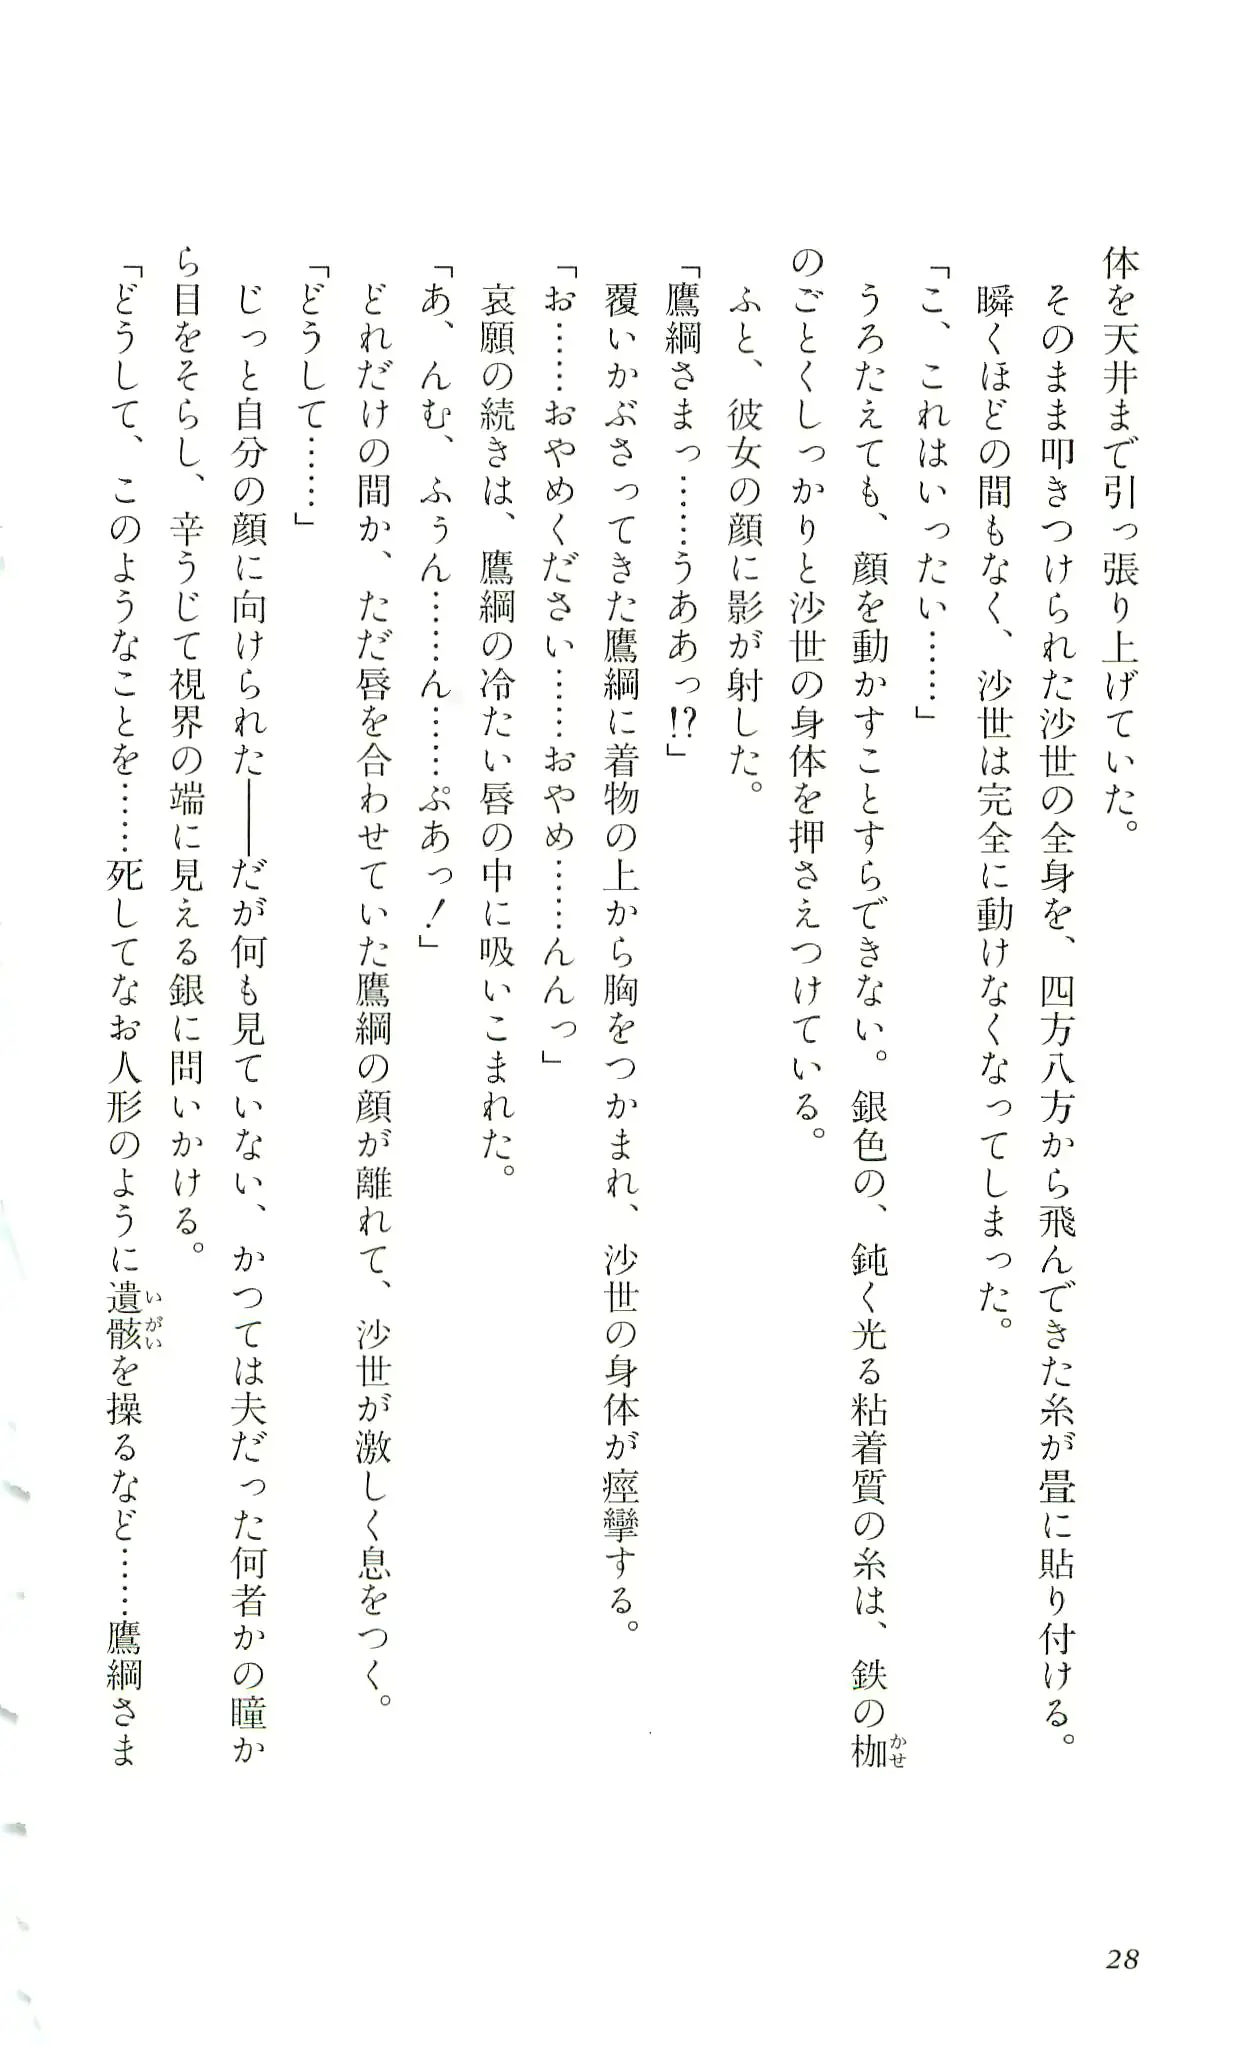 体を天井まで引っ張り上げていた。
そのまま叩きつけられた沙世の全身を、四方八方から飛んできた糸が畳に貼り付ける。
瞬くほどの間もなく、沙世は完全に動けなくなってしまった。
「こ、これはいったい……」
うろたえても、顔を動かすことすらできない。銀色の、鈍く光る粘着質の糸は、鉄の枷かせ
のごとくしっかりと沙世の身体を押さえつけている。
ふと、彼女の顔に影が射した。
「鷹綱さまっ……うああっ!?」
覆いかぶさってきた鷹綱に着物の上から胸をつかまれ、沙世の身体が痙攣する。
「お……おやめください……おやめ……んんっ」
哀願の続きは、鷹綱の冷たい唇の中に吸いこまれた。
「あ、んむ、ふぅん……ん……ぷあっ！」
どれだけの間か、ただ唇を合わせていた鷹綱の顔が離れて、沙世が激しく息をつく。
「どうして……」
じっと自分の顔に向けられた――だが何も見ていない、かつては夫だった何者かの瞳か
ら目をそらし、辛うじて視界の端に見える銀に問いかける。
「どうして、このようなことを……死してなお人形のように遺骸いがいを操るなど……鷹綱さま
28